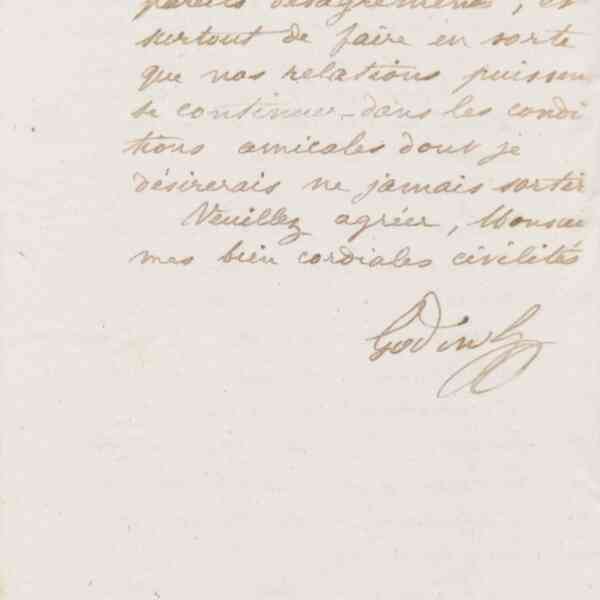 pareils désagréments, et
surtout de faire en sorte
que nos relations puissen
se continuer dans les condi
tions amicales dont je
désirerais ne jamais sortir
Veuillez agréer, Monsieu
mes bien cordiales civilités
Godin